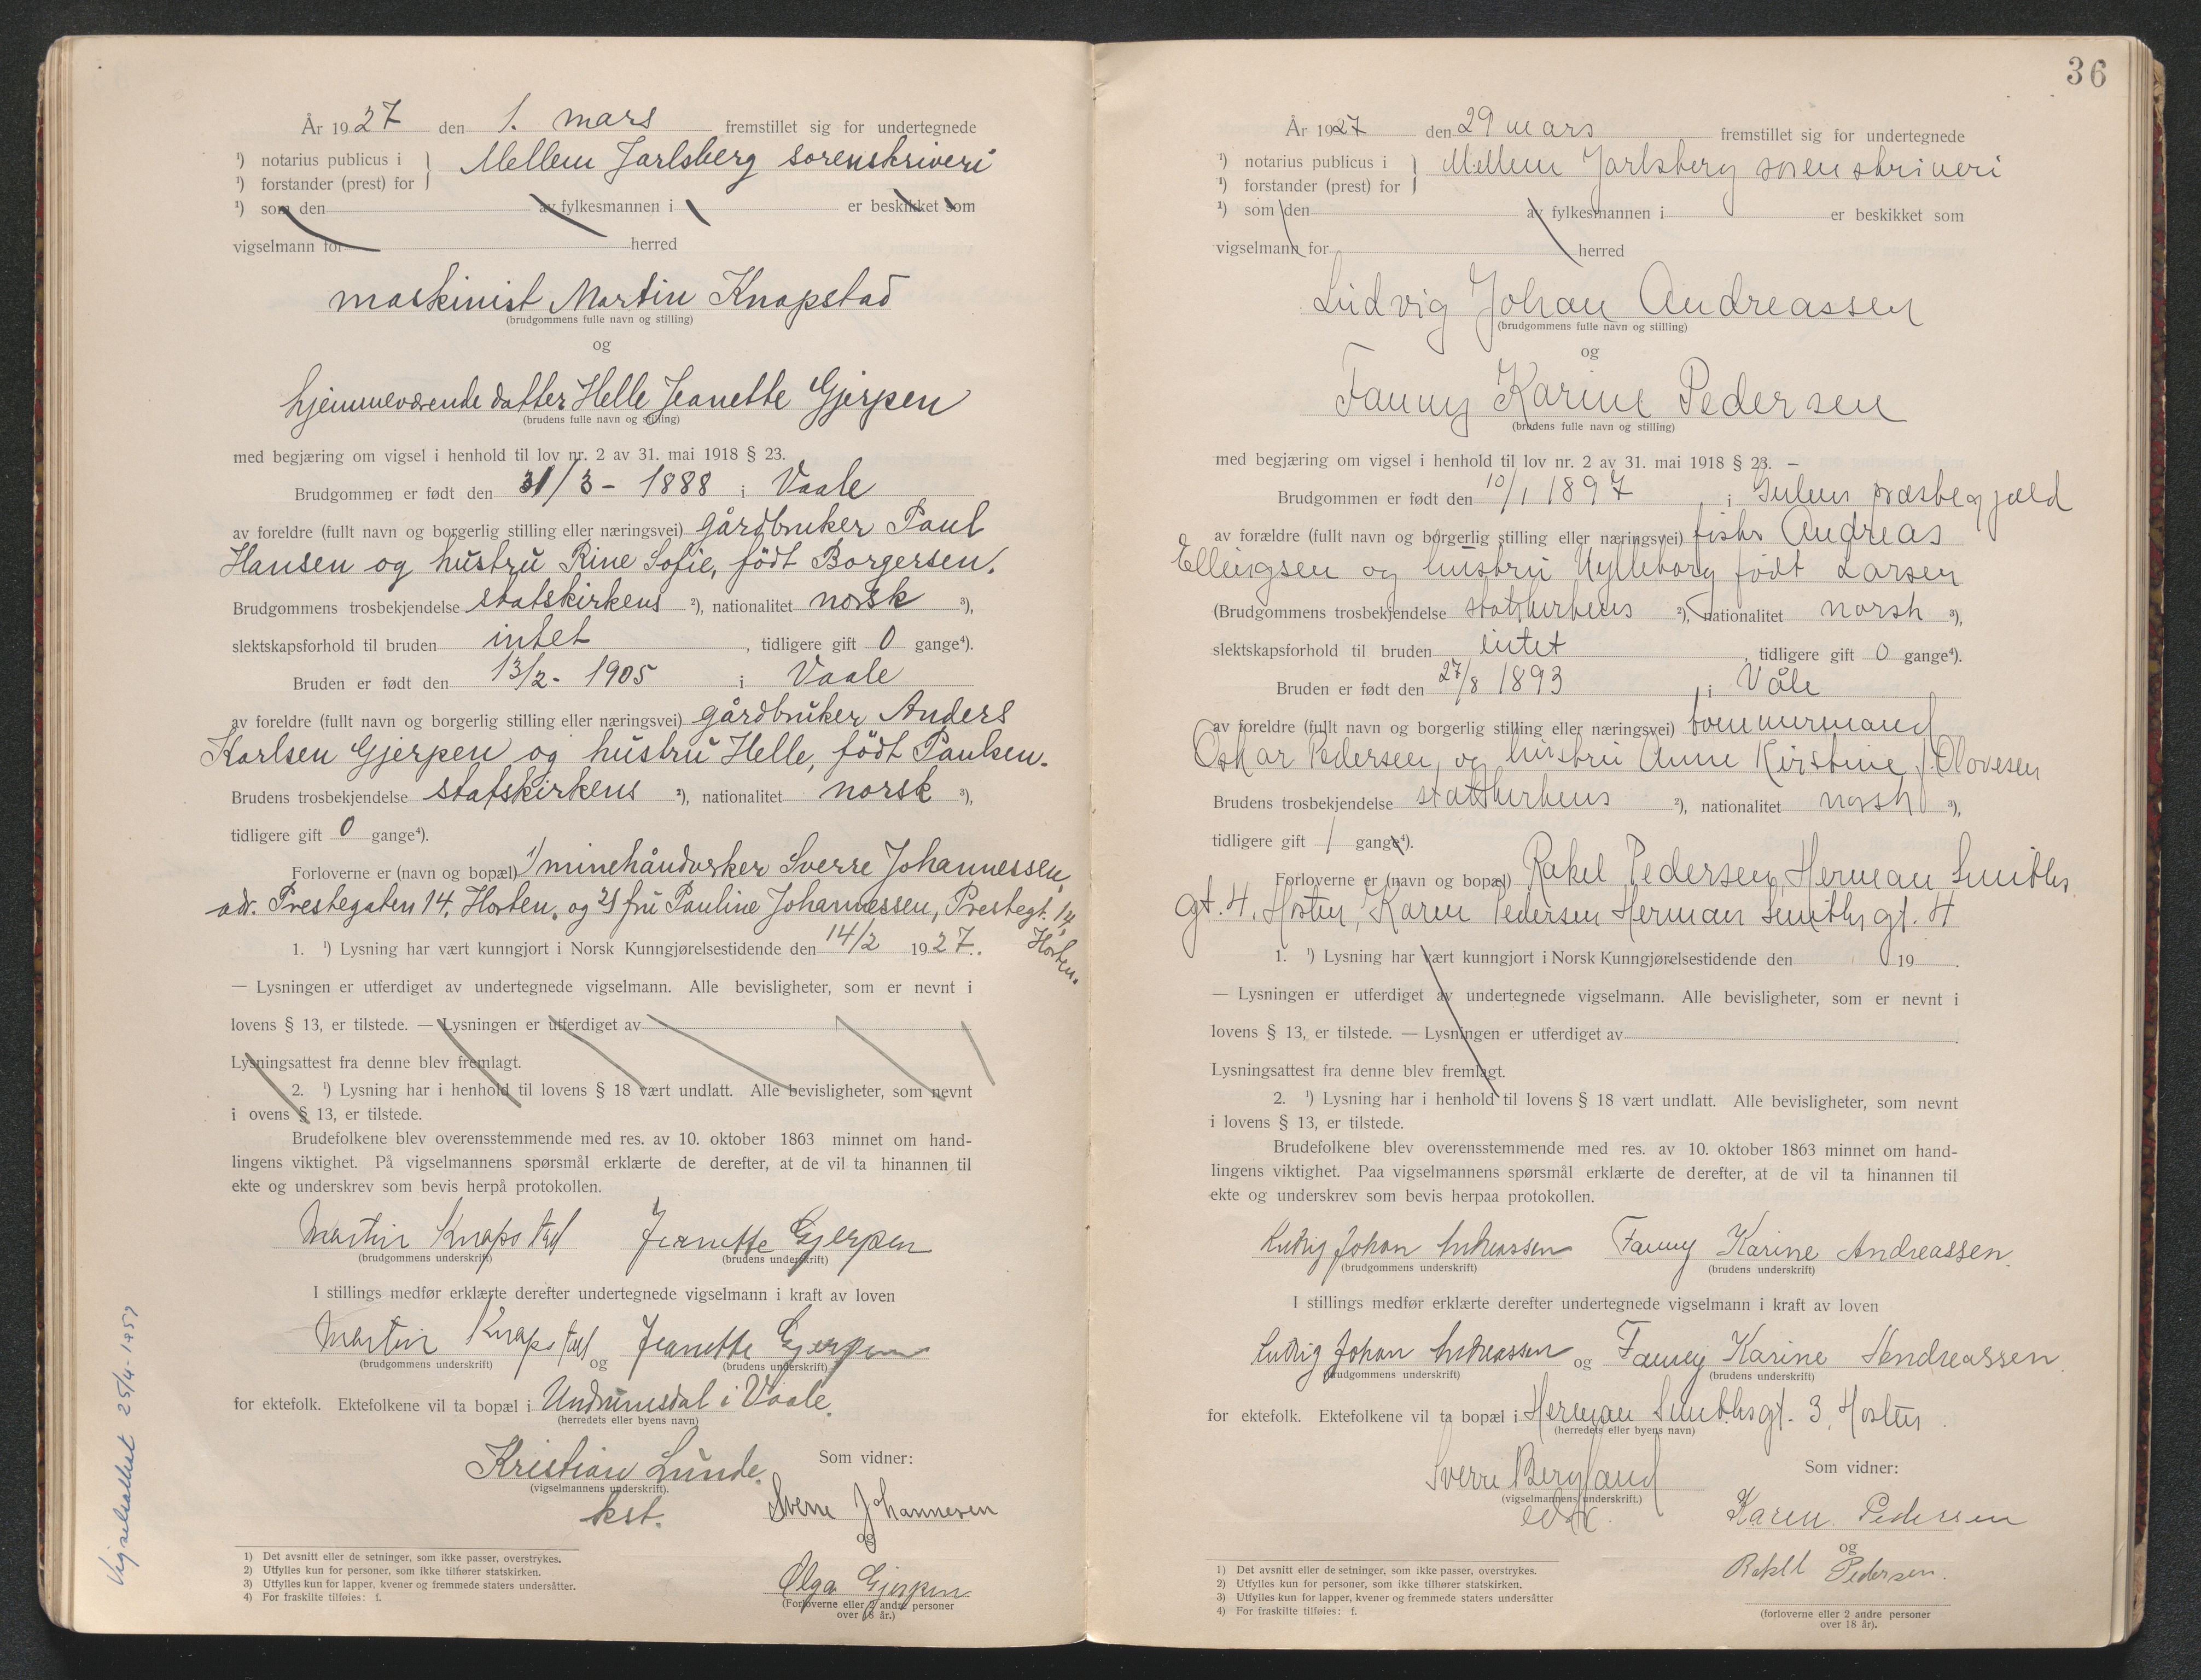 År 1927 den 1. mars fremstillet sig for undertegnede
¹) notarius publicus i } Mellem Jarlsberg sorenskriveri
¹) forstander (prest) for
¹) som den av fylkesmannen i er beskikket som
vigselmann for herred
maskinist Martin Knapstad
(brudgommens fulle navn og stilling)
og
hjemmeværende datter Helle Jeanette Gjerpen
(brudens fulle navn og stilling)
med begjæring om vigsel i henhold til lov nr. 2 av 31. mai 1918 § 23.
Brudgommen er født den 31/3 - 1888 i Vaale
av foreldre (fullt navn og borgerlig stilling eller næringsvei) gårdbruker Paul
Hansen og hustru Rine Sofie, født Borgersen.
Brudgommens trosbekjendelse statskirkens ²), nationalitet norsk ³),
slektskapsforhold til bruden intet, tidligere gift 0 gange⁴).
Bruden er født den 13/2 - 1905 i Vaale
av foreldre (fullt navn og borgerlig stilling eller næringsvei) gårdbruker Anders
Karlsen Gjerpen og hustru Helle, født Paulsen.
Brudens trosbekjendelse statskirkens ²), nationalitet norsk ³),
tidligere gift 0 gange⁴).
Forloverne er (navn og bopæl) 1) minehåndverker Sverre Johannessen,
adr. Prestegaten 14, Horten, og 2) fru Pauline Johannessen, Prestegt. 14,
Horten.
1. ¹) Lysning har vært kunngjort i Norsk Kunngjørelsestidende den 14/2 1927.
— Lysningen er utferdiget av undertegnede vigselmann. Alle bevisligheter, som er nevnt i
lovens § 13, er tilstede. — Lysningen er utferdiget av
Lysningsattest fra denne blev fremlagt.
2. ¹) Lysning har i henhold til lovens § 18 vært undlatt. Alle bevisligheter, som nevnt
i ovens § 13, er tilstede.
Brudefolkene blev overensstemmende med res. av 10. oktober 1863 minnet om hand-
lingens viktighet. På vigselmannens spørsmål erklærte de derefter, at de vil ta hinannen til
ekte og underskrev som bevis herpå protokollen.
Martin Knapstad Jeanette Gjerpen
(brudgommens underskrift) (brudens underskrift)
I stillings medfør erklærte derefter undertegnede vigselmann i kraft av loven
Martin Knapstad og Jeanette Gjerpen
(brudgommens underskrift) (brudens underskrift)
for ektefolk. Ektefolkene vil ta bopæl i Undrumsdal i Vaale.
(herredets eller byens navn)
Kristian Lunde.
(vigselmannens underskrift).
kst.
Som vidner:
Sverre Johannesen
og
Olga Gjerpen
(Forloverne eller 2 andre personer
over 18 år.)
1) Det avsnitt eller de setninger, som ikke passer, overstrykes.
2) Utfylles kun for personer, som ikke tilhører statskirken.
3) Utfylles kun for lapper, kvener og fremmede staters undersåtter.
4) For fraskilte tilføies: f.
Vigselsattest 25/4-1957
36
År 1927 den 29 mars fremstillet sig for undertegnede
¹) notarius publicus i } Mellem Jarlsberg sorenskriveri
¹) forstander (prest) for
¹) som den av fylkesmannen i er beskikket som
vigselmann for herred
Ludvig Johan Andreassen
(brudgommens fulle navn og stilling)
og
Fanny Karine Pedersen
(brudens fulle navn og stilling)
med begjæring om vigsel i henhold til lov nr. 2 av 31. mai 1918 § 23. –
Brudgommen er født den 10/1 1897, i Gulens præstegjæld
av forældre (fullt navn og borgerlig stilling eller næringsvei) fisker Andreas
Ellingsen og hustru født Larsen
(Brudgommens trosbekjendelse statskirkens ²), nationalitet norsk ³),
slektskapsforhold til bruden intet, tidligere gift 0 gange⁴).
Bruden er født den 27/8 1893, i Våle
av foreldre (fullt navn og borgerlig stilling eller næringsvei) tømmermand
Oskar Pedersen og hustru Anne Kirstine f. Olovesen
Brudens trosbekjendelse statskirkens ²), nationalitet norsk ³),
tidligere gift 1 gange⁴).
Forloverne er (navn og bopæl) Rakel Pedersen, Herman Smiths
gt. 4, Horten, Karen Pedersen Herman Smiths gt. 4
1. ¹) Lysning har vært kunngjort i Norsk Kunngjørelsestidende den 19 .
— Lysningen er utferdiget av undertegnede vigselmann. Alle bevisligheter, som er nevnt i
lovens § 13, er tilstede. — Lysningen er utferdiget av
Lysningsattest fra denne blev fremlagt.
2. ¹) Lysning har i henhold til lovens § 18 vært undlatt. Alle bevisligheter, som nevnt
i lovens § 13, er tilstede.
Brudefolkene blev overensstemmende med res. av 10. oktober 1863 minnet om hand-
lingens viktighet. Paa vigselmannens spørsmål erklærte de derefter, at de vil ta hinannen til
ekte og underskrev som bevis herpaa protokollen.
Ludvig Johan Andreassen Fanny Karine Andreassen.
(brudgommens underskrift) (brudens underskrift)
I stillings medfør erklærte derefter undertegnede vigselmann i kraft av loven
Ludvig Johan Andreassen og Fanny Karine Andreassen.
(brudgommens underskrift) (brudens underskrift)
for ektefolk. Ektefolkene vil ta bopæl i Herman Smithsgt. 3, Horten.
(herredets eller byens navn)
Sverre Bergland
(vigselmannens underskrift.)
Som vidner:
Karen Pedersen
og
Rakel Pedersen.
(forloverne eller 2 andre personer
over 18 år).
1) Det avsnitt eller de setninger, som ikke passer, overstrykes.
2) Utfylles kun for personer, som ikke tilhører statskirken.
3) Utfylles kun for lapper, kvener og fremmede staters undersåtter
4) For fraskilte tilføies: f.